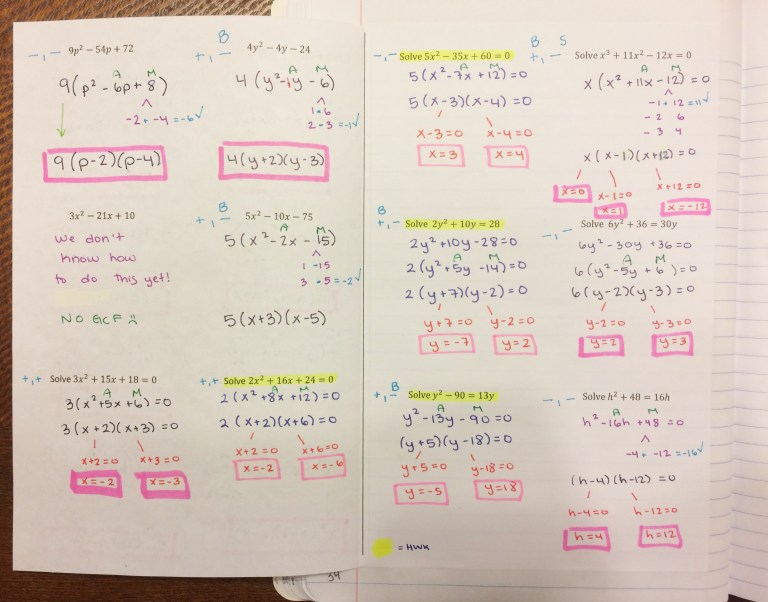 -,- 9p² - 54p + 72
A M
9(p² - 6p + 8)
^
-2 + -4 = -6 ✓
9(p-2)(p-4)
B
+,- 4y² - 4y - 24
A M
4(y² - 1y - 6)
^
1 - 6
2 - 3 = -1 ✓
4(y+2)(y-3)
3x² - 21x + 10
We don't
know how
to do this yet!
NO GCF
B
+,- 5x² - 10x - 75
A M
5(x² - 2x - 15)
^
1 -15
3 -5 = -2 ✓
5(x+3)(x-5)
+,+ Solve 3x² + 15x + 18 = 0
A M
3(x² + 5x + 6) = 0
3(x+2)(x+3) = 0
x+2=0 x+3=0
x=-2 x=-3
+,+ Solve 2x² + 16x + 24 = 0
A M
2(x² + 8x + 12) = 0
2(x+2)(x+6) = 0
x+2=0 x+6=0
x=-2 x=-6
-,- Solve 5x² - 35x + 60 = 0
A M
5(x² - 7x + 12) = 0
5(x-3)(x-4) = 0
x-3=0 x-4=0
x=3 x=4
B S
+,- Solve x³ + 11x² - 12x = 0
A M
x(x² + 11x - 12) = 0
^
-1 + 12 = 11 ✓
-2 6
-3 4
x(x-1)(x+12) = 0
x=0 x-1=0 x+12=0
x=1 x=-12
B
+,- Solve 2y² + 10y = 28
2y² + 10y - 28 = 0
A M
2(y² + 5y - 14) = 0
2(y+7)(y-2) = 0
y+7=0 y-2=0
y=-7 y=2
-,- Solve 6y² + 36 = 30y
6y² - 30y + 36 = 0
A M
6(y² - 5y + 6) = 0
6(y-2)(y-3) = 0
y-2=0 y-3=0
y=2 y=3
B
+,- Solve y² - 90 = 13y
A M
y² - 13y - 90 = 0
(y+5)(y-18) = 0
y+5=0 y-18=0
y=-5 y=18
-,- Solve h² + 48 = 16h
A M
h² - 16h + 48 = 0
^
-4 + -12 = -16 ✓
(h-4)(h-12) = 0
h-4=0 h-12=0
h=4 h=12
= HWK
34